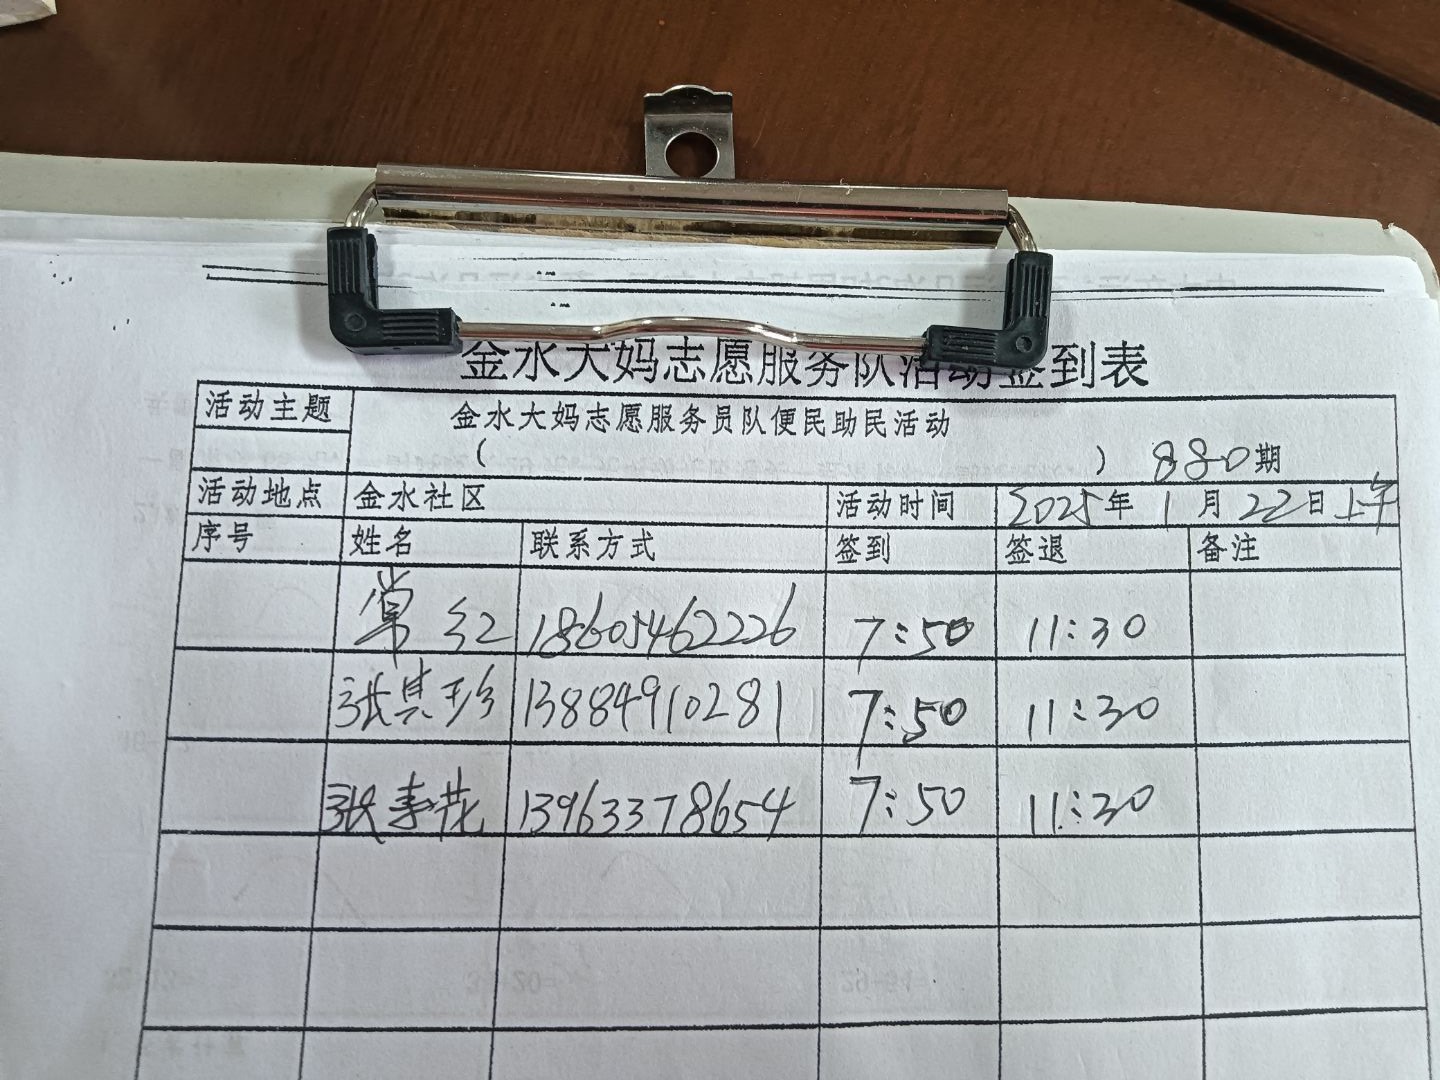 金水大妈志愿服务队活动签到表
活动主题 金水大妈志愿服务员队便民助民活动
( ) 880期
活动地点 金水社区 活动时间 2025年 1月 22日上午
序号 姓名 联系方式 签到 签退 备注
常红 18605462226 7:50 11:30
张其珍 13884910281 7:50 11:30
张春花 13963378654 7:50 11:30